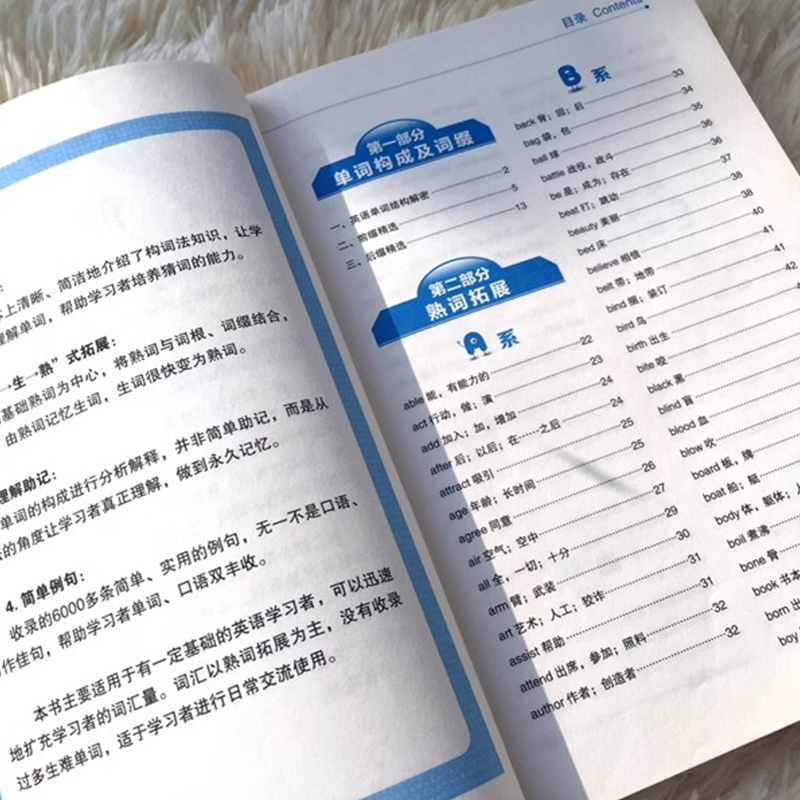 :
上清晰、简洁地介绍了构词法知识，让学
理解单词，帮助学习者培养猜词的能力。
→生→熟”式拓展：
基础熟词为中心，将熟词与词根、词缀结合，
由熟词记忆生词，生词很快变为熟词。
理解助记：
单词的构成进行分析解释，并非简单助记，而是从
的角度让学习者真正理解，做到永久记忆。
4. 简单例句：
收录的6000多条简单、实用的例句，无一不是口语、
作佳句，帮助学习者单词、口语双丰收。
本书主要适用于有一定基础的英语学习者，可以迅速
地扩充学习者的词汇量。词汇以熟词拓展为主，没有收录
过多生难单词，适于学习者进行日常交流使用。
目录 Contents
第一部分
单词构成及词缀
一、英语单词结构解密 2
二、前缀精选 5
三、后缀精选 13
第二部分
熟词拓展
A 系
able 能，有能力的 22
act 行动，做；演 23
add 加入；加，增加 24
after 后；以后；在……之后 24
attract 吸引 25
age 年龄；长时间 25
agree 同意 26
air 空气；空中 27
all 全，一切；十分 29
arm 臂；武装 30
art 艺术；人工；狡诈 31
assist 帮助 31
attend 出席，参加；照料 32
author 作者；创造者 32
B 系
back 背；回；后 33
bag 袋，包 34
ball 球 35
battle 战役，战斗 36
be 是；成为；存在 36
beat 打；跳动 37
beauty 美丽 38
bed 床 38
believe 相信 40
belt 带；地带 41
bind 捆；装订 41
bird 鸟 42
birth 出生
bite 咬
black 黑
blind 盲
blood 血
blow 吹
board 板，牌
boat 船；艇
body 体，躯体；
boil 煮沸
bone 骨
book 书本
born 出
boy